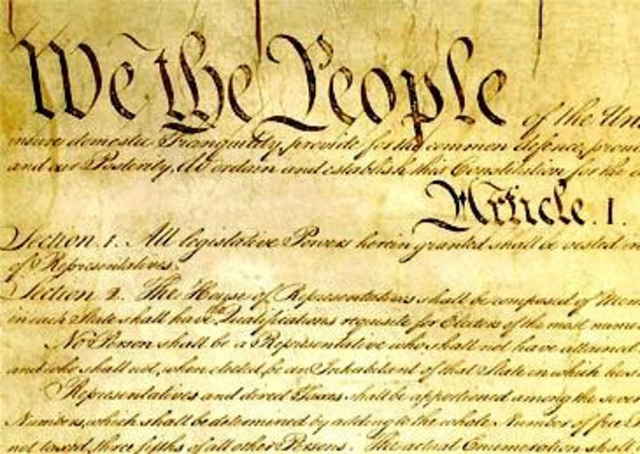 We the People of the Un
insure domestic Tranquility, provide for the common defence, prom
and our Posterity, do ordain and establish this Constitution for the
Article. I.
Section. 1. All legislative Powers herein granted shall be vested in
of Representatives.
Section. 2. The House of Representatives shall be composed of Mem
in each State shall have the Qualifications requisite for Electors of the most nume
No Person shall be a Representative who shall not have attained
and who shall not, when elected, be an Inhabitant of that State in which he s
Representatives and direct Taxes shall be apportioned among the sever
Numbers, which shall be determined by adding to the whole Number of free
not taxed, three fifths of all other Persons. The actual Enumeration shall